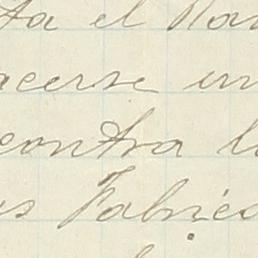 ta el
acerse un
contra l
us Fabric